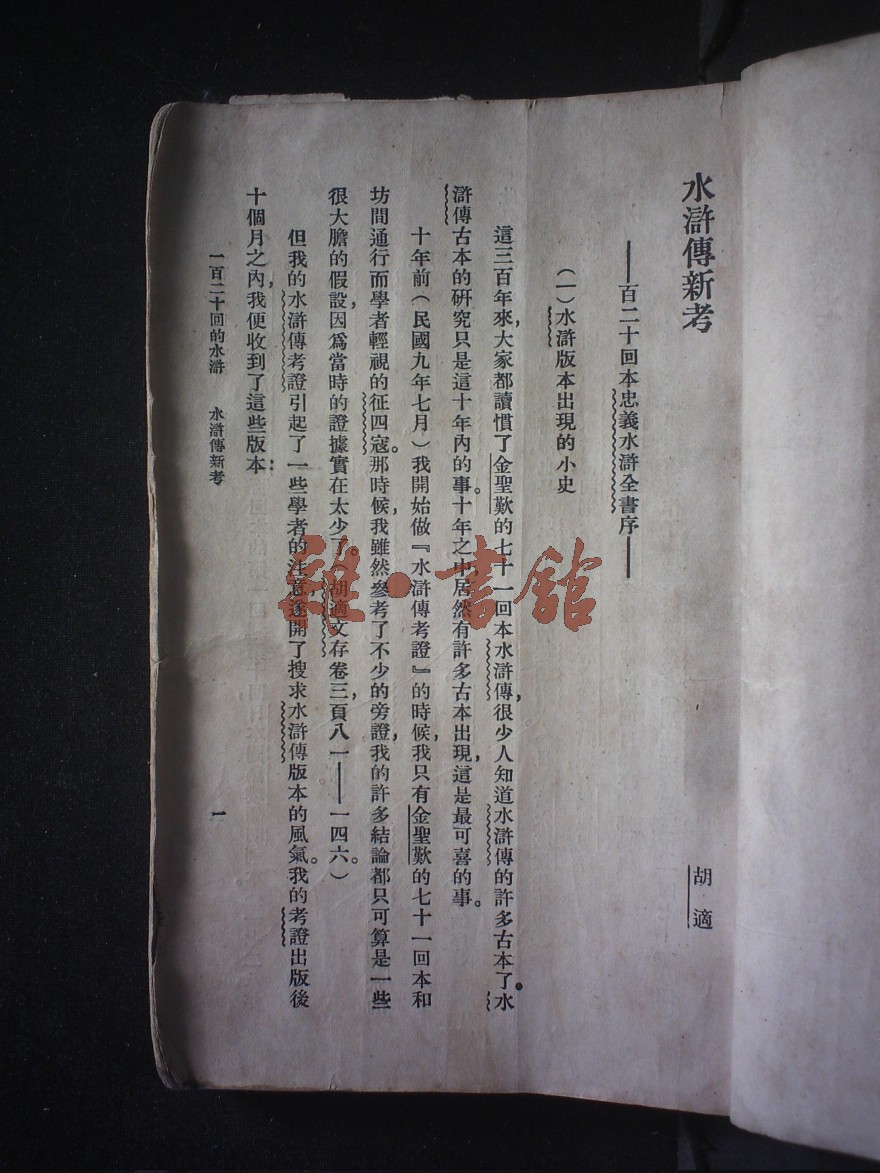 水滸傳新考
——百二十回本忠義水滸全書序——
胡適
(一)水滸版本出現的小史
這三百年來,大家都讀慣了金聖歎的七十一回本水滸傳,很少人知道水滸傳的許多古本了。水
滸傳古本的研究只是這十年內的事。十年之中,居然有許多古本出現,這是最可喜的事。
十年前(民國九年七月)我開始做『水滸傳考證』的時候,我只有金聖歎的七十一回本和
坊間通行而學者輕視的征四寇。那時候,我雖然參考了不少的旁證,我的許多結論都只可算是一些
很大膽的假設,因為當時的證據實在太少了。(胡適文存卷三,頁八一——一四六。)
但我的水滸傳考證引起了一些學者的注意,遂開了搜求水滸傳版本的風氣。我的考證出版後
十個月之內,我便收到了這些版本:
一百二十回的水滸 水滸傳新考 一
雜·書館